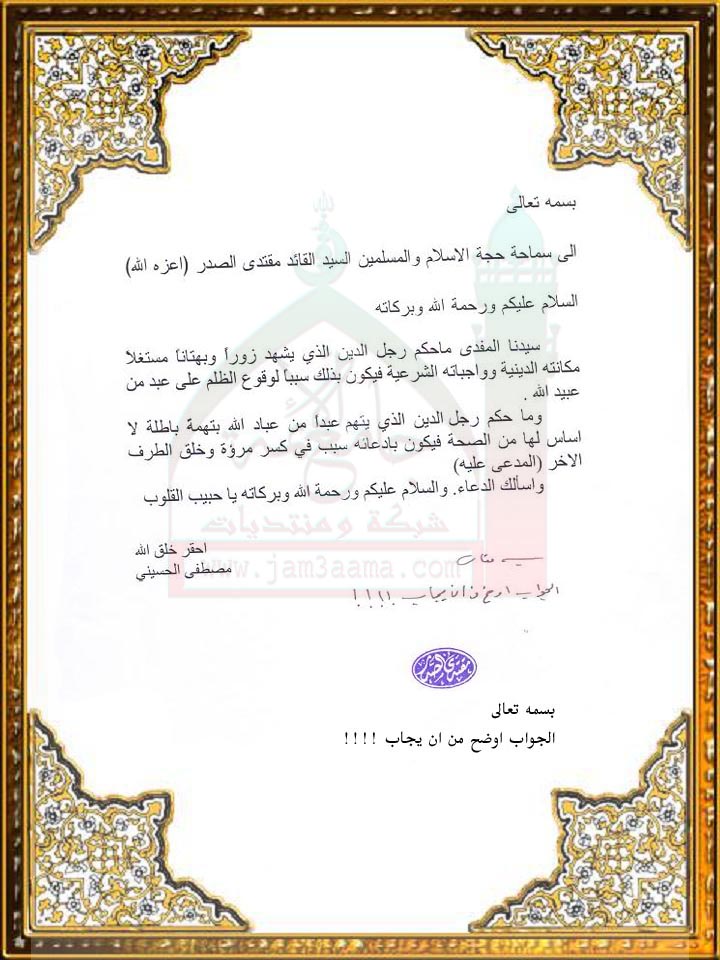 بسمه تعالى
الى سماحة حجة الاسلام والمسلمين السيد القائد مقتدى الصدر (اعزه الله)
السلام عليكم ورحمة الله وبركاته
سيدنا المفدى ماحكم رجل الدين الذي يشهد زوراً وبهتاناً مستغلاً
مكانته الدينية وواجباته الشرعية فيكون بذلك سبباً لوقوع الظلم على عبد من
عبيد الله .
وما حكم رجل الدين الذي يتهم عبداً من عباد الله بتهمة باطلة لا
اساس لها من الصحة فيكون بادعائه سبب في كسر مرؤة وخلق الطرف
الاخر (المدعى عليه)
واسألك الدعاء. والسلام عليكم ورحمة الله وبركاته يا حبيب القلوب
شبكة ومنتديات
احقر خلق الله
مصطفى الحسيني
www.jam3aama.com
بسمه تعالى
الجواب اوضح من ان يجاب !!!!
مقتدى الصدر
بسمه تعالى
الجواب اوضح من ان يجاب !!!!